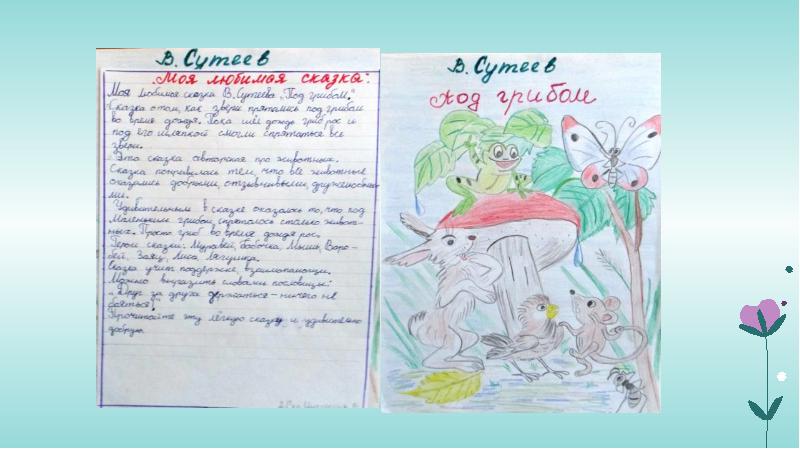 В. Сутеев
Моя любимая сказка:
Моя любимая сказка В. Сутеева „Под грибом."
Сказка о том, как звери прятались под грибом
во время дождя. Пока шёл дождь гриб рос и
под его шляпкой смогли спрятаться все
звери.
Эта сказка авторская про животных.
Сказка понравилась тем, что все животные
оказались добрыми, отзывчивыми, дружелюбны-
ми.
Удивительным в сказке оказалось то, что под
маленьким грибом спряталось столько живот-
ных. Просто гриб во время дождя рос.
Герои сказки: Муравей, бабочка, Мышь, Воро-
бей, Заяц, Лиса, Лягушка.
Сказка учит поддержке, взаимопомощи.
Можно выразить словами пословицы:
"Друг за друга держаться – ничего не
бояться".
Прочитайте эту лёгкую сказку и удивительно
добрую.
В. Сутеев
Под грибом